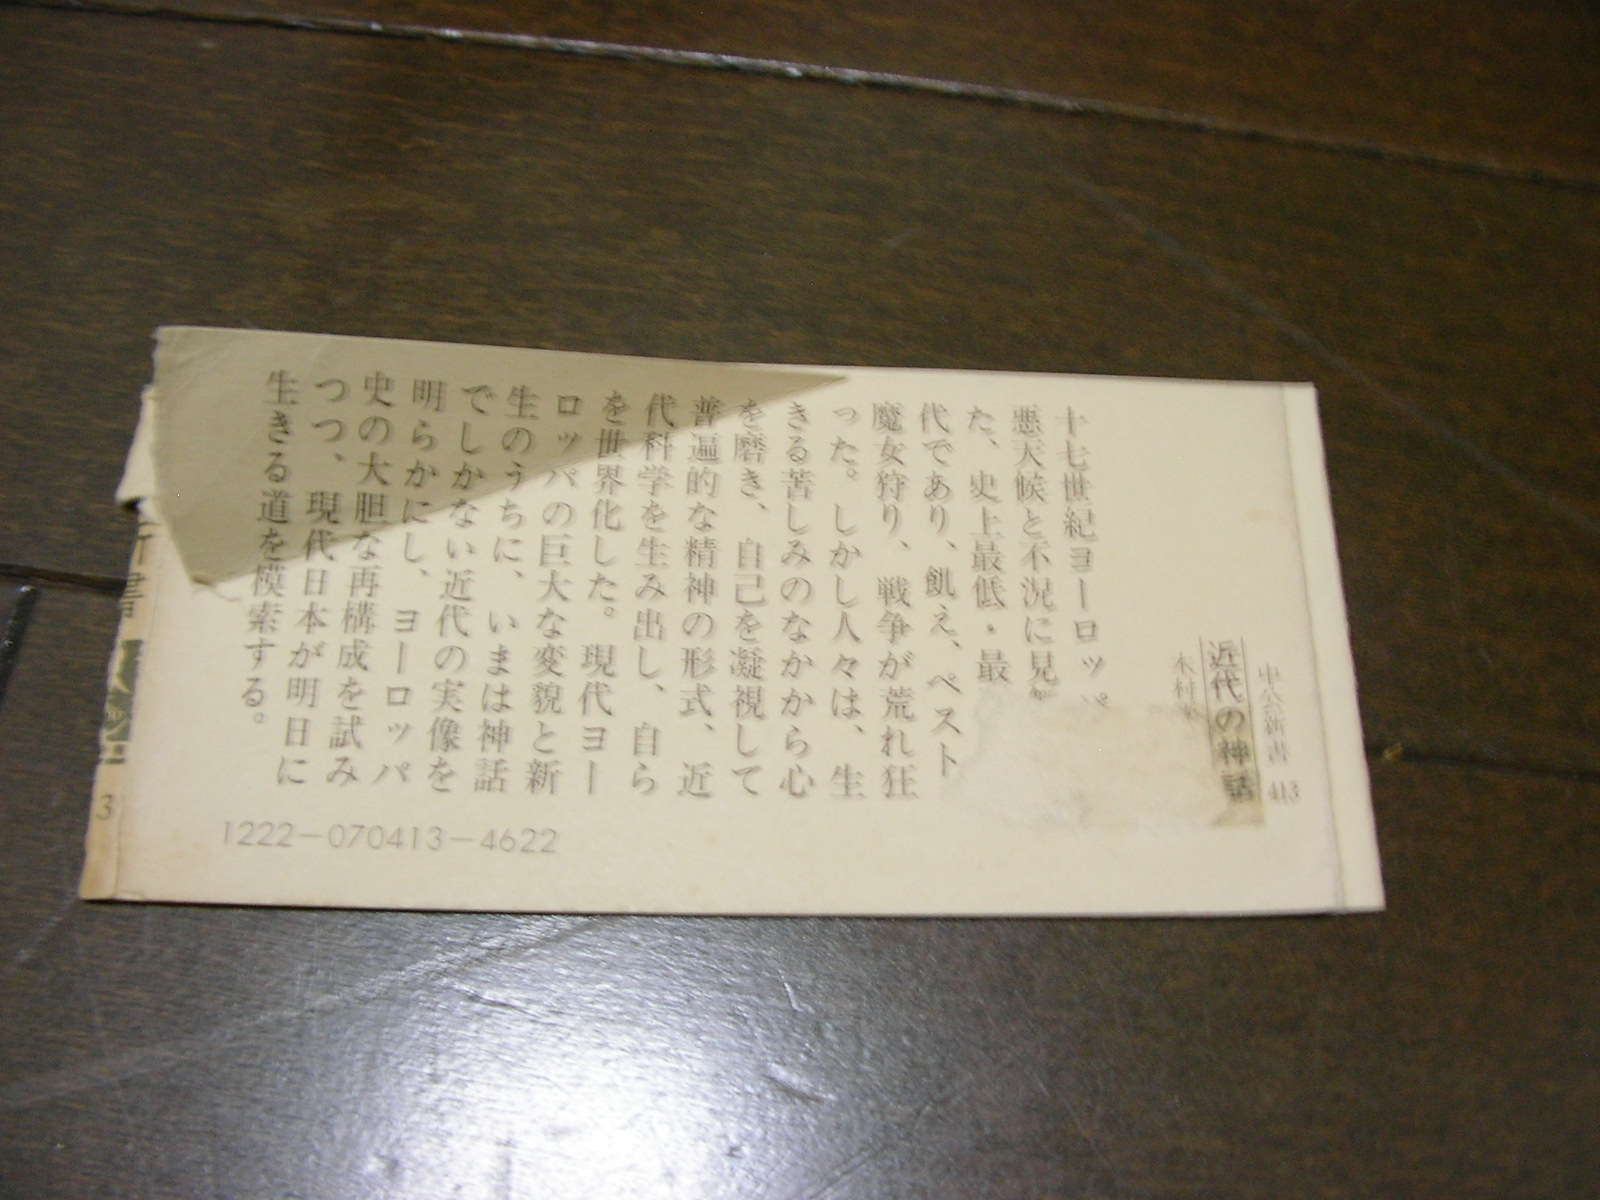 中公新書 413
近代の神話
木村
十七世紀ヨーロッパ
悪天候と不況に見
た、史上最低・最
代であり、飢え、ペスト
魔女狩り、戦争が荒れ狂
った。しかし人々は、生
きる苦しみのなかから心
を磨き、自己を凝視して
普遍的な精神の形式、近
代科学を生み出し、自ら
を世界化した。現代ヨー
ロッパの巨大な変貌と新
生のうちに、いまは神話
でしかない近代の実像を
明らかにし、ヨーロッパ
史の大胆な再構成を試み
つつ、現代日本が明日に
生きる道を模索する。
1222-070413-4622
書
3